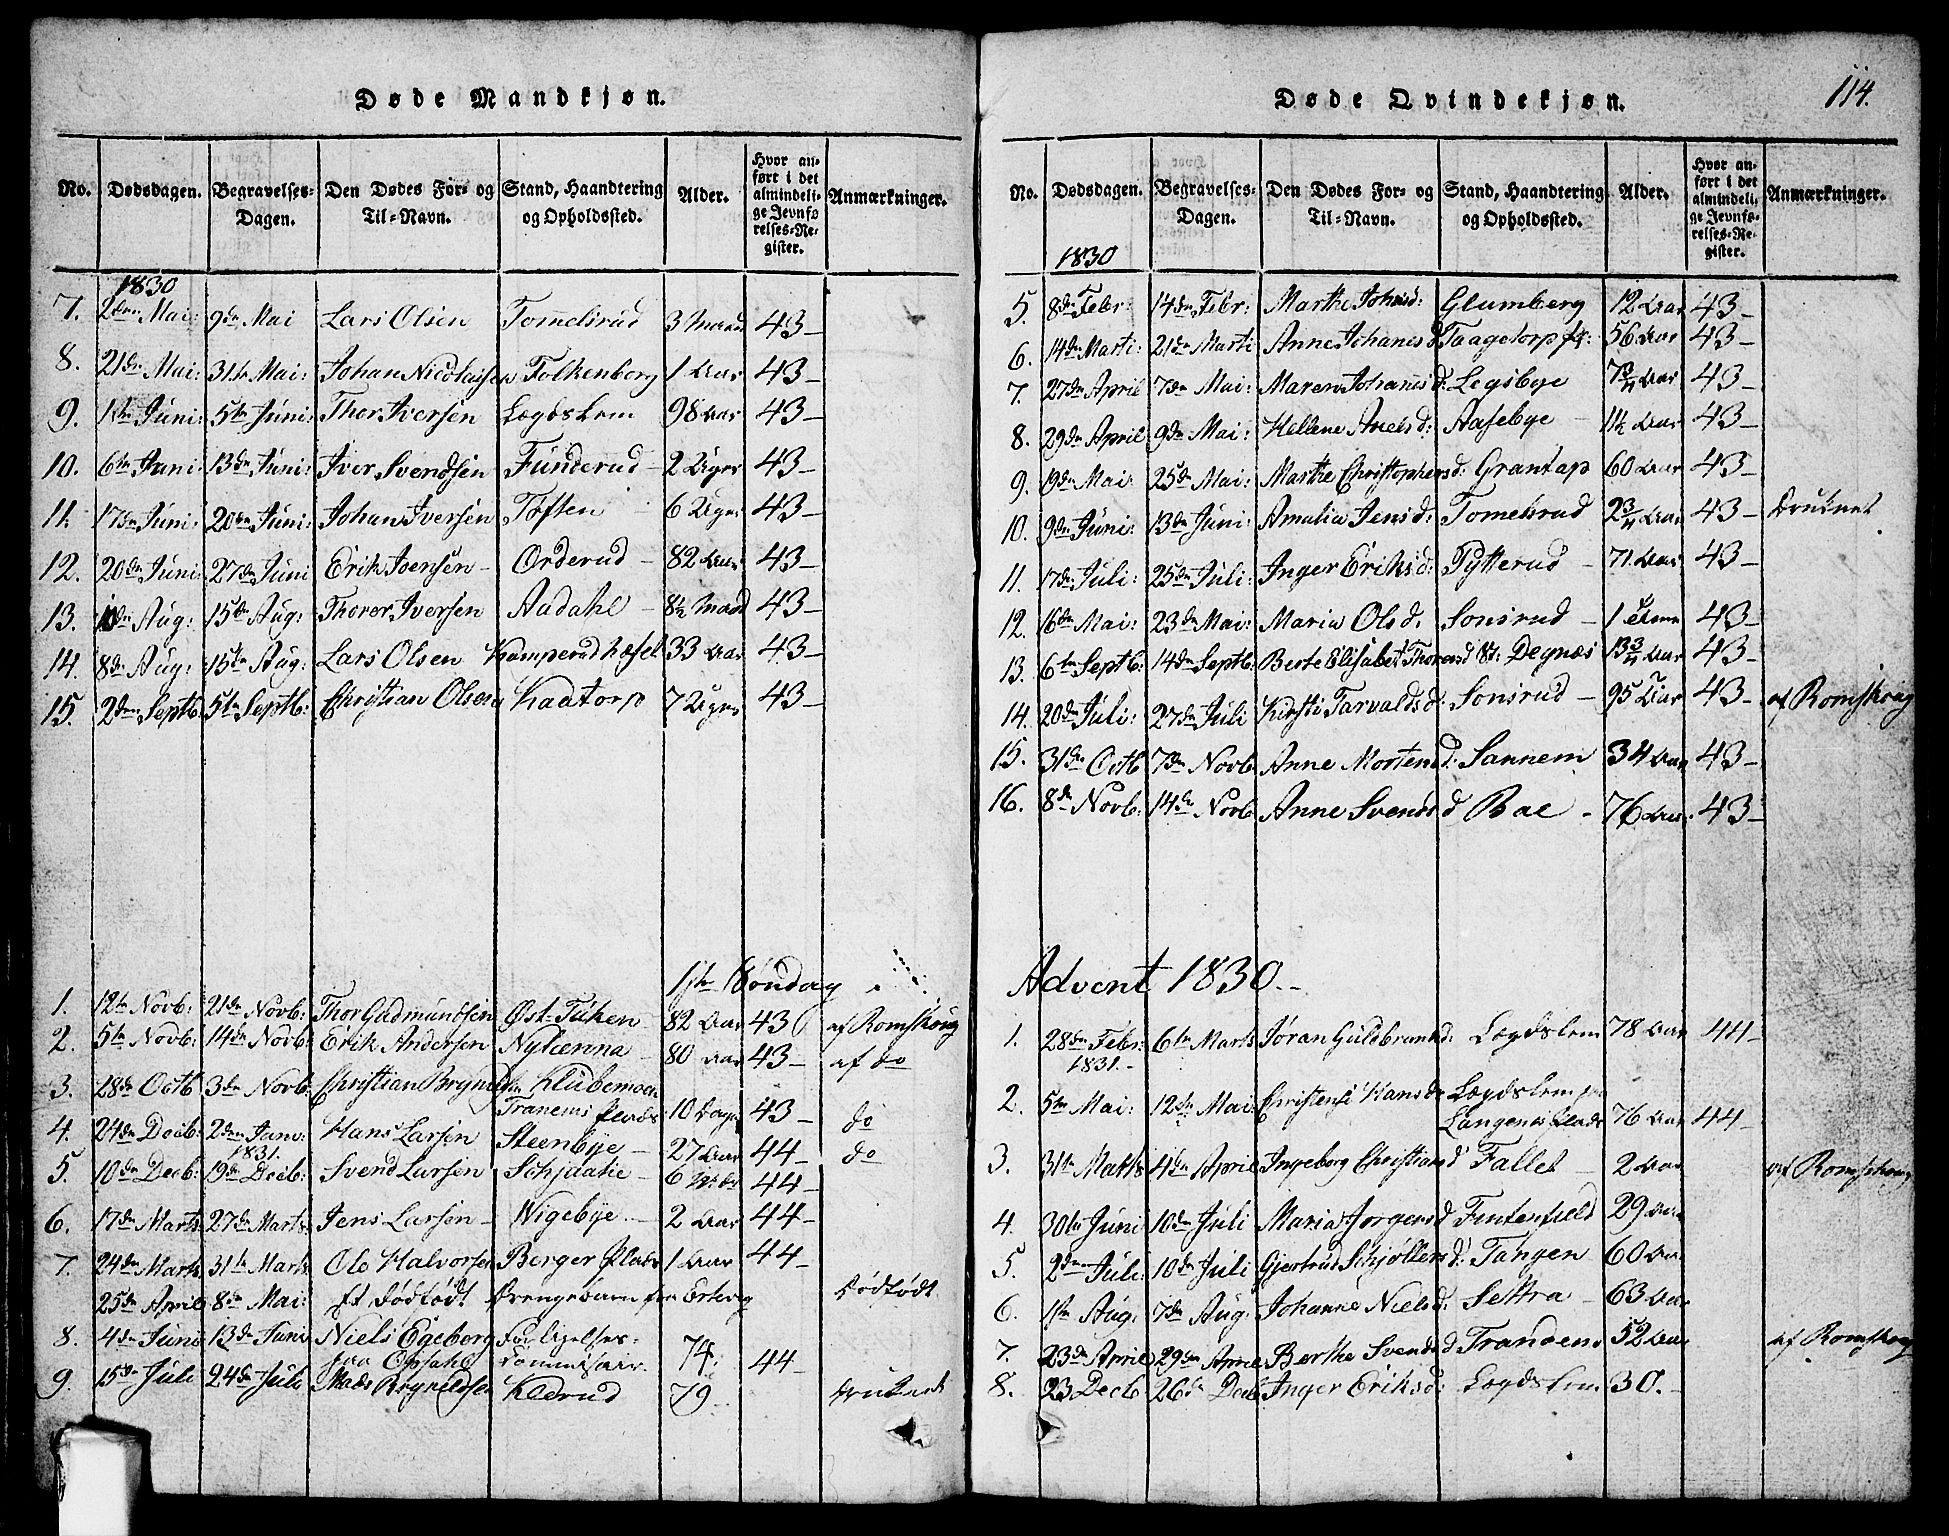 Døde Mandkjøn.
No. Dødsdagen. Begravelses-Dagen. Den Dødes For- og Til-Navn. Stand, Haandtering og Opholdssted. Alder. Hvor anført i det almindelige Jevnførelses-Register. Anmærkninger.
1830
7. 2den Mai: 9de Mai Lars Olsen Tomelsrud 3 Maan 43
8. 21de Mai: 31te Mai: Johan Nicolaisen Folkenborg 1 Aar 43
9. 1te Juni: 5te Juni: Thor Iversen Lægdslem 98 Aar 43
10. 6te Juni: 13de Juni: Iver Svendsen Funderud 2 Uger 43
11. 17de Juni: 20de Juni: Johan Iversen Toften 6 Uger 43
12. 20de Juni: 27de Juni Erik Iversen Orderud 82 Aar 43
13. Aug: 15de Aug: Thorer Iversen Aadahl 8½ Maad 43
14. 8de Aug: 15te Aug: Lars Olsen Kamperud 33 Aar 43
15. 2den Septb: 5te Septb: Christian Olsen Kaatorp 7 Uger 43
1ste Søndag i
1. 12te Novb: 21de Novb: Thor Gudmundsen Øst-Tuken 82 Aar 43 af Romskoug
2. 5te Novb: 14de Novb: Erik Andersen Nylænna 80 Aar 43 af do
3. 28de Octb 3de Novb: Christian Klubemoen
Tranems Plads 10 Dage 43 do
4. 24de Decb: 2den Janu: 1831. Hans Larsen Steenbye 27 Aar 44 do
5. 10de Decb: 19de Decb: Svend Larsen 6 44
6. 17de Marts 27de Marts: Jens Larsen Nigebye 2 Aar 44
7. 24de Marts 31te Marts Ole Halvorsen Berger Plads 1 Aar 44
25de April 8de Mai: et dødfødt Drengebarn fra Dødfødt
8. 4de Juni 13de Juni Niels Egeborg Forligelses-
fra Opsahl Commissair. 74 44
9. 15de Juli 24de Juli Mads Brynildsen Kledrud 79 druknet
Døde Qvindekjøn. 114.
No. Dødsdagen. Begravelses-Dagen. Den Dødes For- og Til-Navn. Stand, Haandtering og Opholdssted. Alder. Hvor anført i det almindelige Jevnførelses-Register. Anmærkninger.
1830
5. 8de Febr: 14de Febr: Marthe Johansd: Glumberg 12 Aar 43
6. 14de Marti: 21de Marti Anne Johanisd Taagetorp 56 Aar 43
7. 27de April 7de Mai: Maren Johanisd: Legsbye Aar 43
8. 29de April 9de Mai: Hellene Axelsd: Aasebye 1½ Aar 43
9. 19de Mai: 25de Mai: Marthe Christophersd: Grantap 60 Aar 43
10. 9de Juni: 13de Juni: Amalia Jensd: Tomelsrud 2¾ Aar 43 Druknet
11. 17de Juli: 25de Juli: Inger Eriksd: Pytterud 71 Aar 43
12. 16de Mai: 23de Mai: Maria Olsd: Sonsrud 1 43
13. 6te Septb: 14de Septb: Berte Elisabet Thoresd St. Degnæs 13¾ Aar 43
14. 20de Juli: 27de Juli Kirsti Tarvaldsd: Sonsrud 95 Aar 43 af Romskoug
15. 31de Octb 7de Novb: Anne Mortensd: Sannem 34 Aar 43
16. 8de Novb: 14de Novb Anne Svensd Bae 76 Aar 43
Advent 1830.
1. 28de Febr: 1831. 6te Marts Jøran Guldbransd: Lægdslem 78 Aar 44
2. 5te Mai: 12te Mai: Christense Hansd: Lægdslem paa
Langenes Plads 76 Aar 44
3. 31te Marts 4de April Ingeborg Christiansd Fallet 2 Aar af Romskoug
4. 30te Juni 10de Juli Maria Jørgensd 29 Aar
5. 2den Juli: 10de Juli Gjertrud Schjøllersd: Tangen 60 Aar
6. 1ste Aug: 7de Aug: Johanne Nielsd: Settra 63 Aar
7. 23de April 29de April Berthe Svendsd Tranden 52 Aar af Romskoug
8. 23 Decb 26de Decb Inger Eriksd: Lægdslem 30.